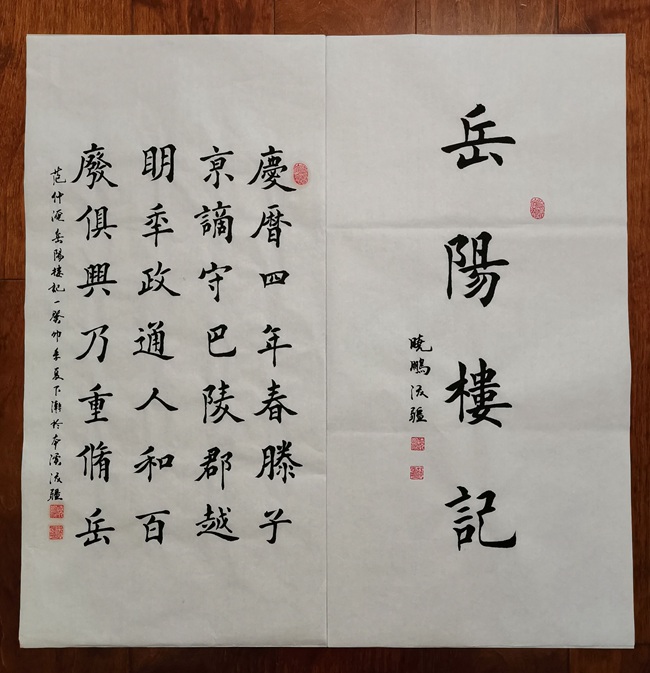 岳陽樓記
曉鵬
慶曆四年春滕子
亰謫守巴陵郡越
眀秊政通人和百
廢俱興乃重脩岳
范仲淹岳陽樓記一癸卯季夏下澣於本溪